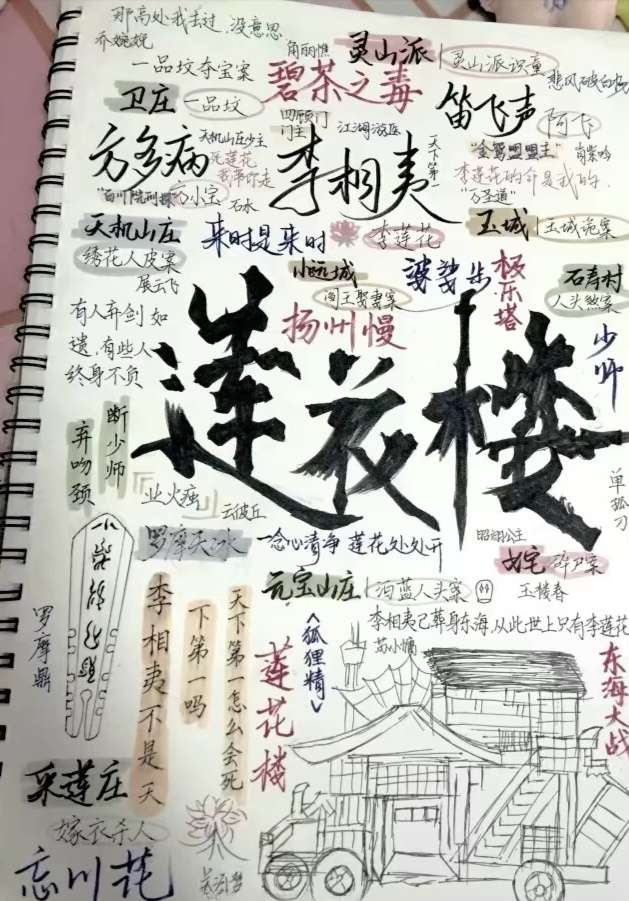 那高处我去过,没意思
乔婉娩
一品坟夺宝案
角丽谯
灵山派
灵山派识童
碧茶之毒
悲风破
卫庄
一品坟
四顾门
门主
江湖游医
笛飞声
阿飞
方多病
天机山庄少主
死莲花
我带你走
李相夷
天下第一
"金鸳盟盟主"
肖紫衿
李莲花的命是我的.
"万圣道"
"百川院刑探"
方小宝
石水
天机山庄
来时是来时
李莲花
玉城
玉城诡案
绣花人皮案
展云飞
小远城
阎王娶妻案
婆娑步
极乐塔
石寿村
人头煞案
扬州慢
少师
有人弃剑如
遗,有些人
终身不负
莲花楼
断少师
弃吻颈
业火痋
云彼丘
单孤刀
罗摩天冰
一念心清净 莲花处处开
昭翎公主
女宅
碎尸案
玉楼春
元宝山庄
泊蓝人头案
李相夷已葬身东海,从此世上只有李莲花
苏小慵
<狐狸精>
罗摩鼎
李相夷不是天
下第一吗
天下第一怎么会死
莲花楼
东海大战
采莲庄
嫁衣杀人
忘川花